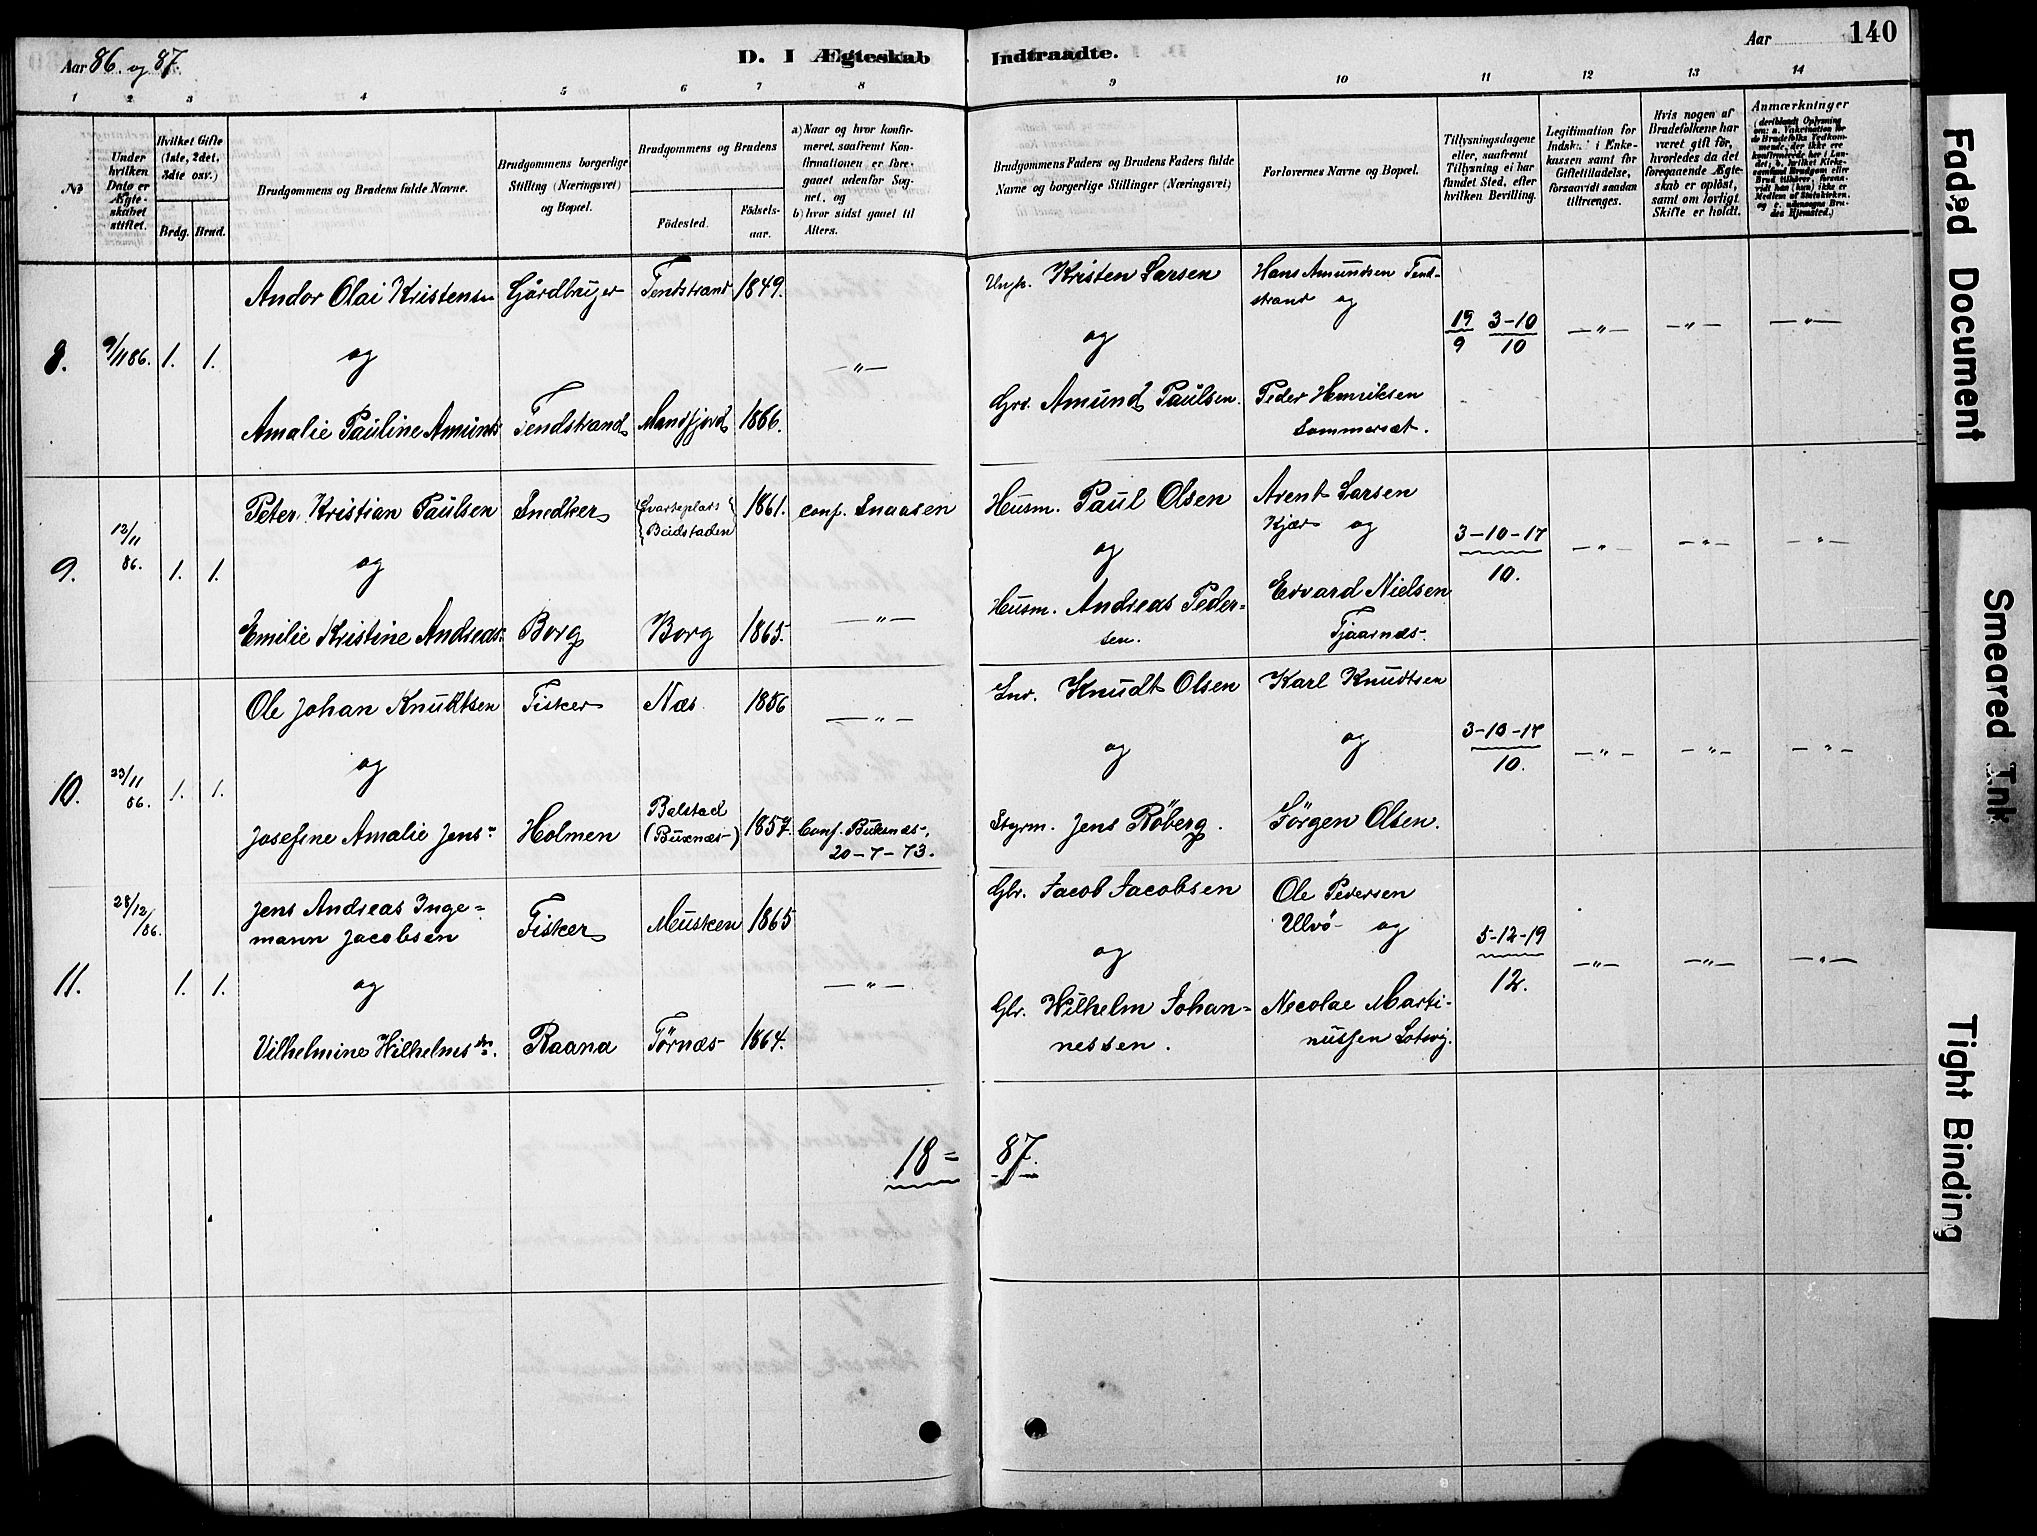 Aar 86. og 87.
D. I Ægteskab Indtraadte.
Aar
140
1 2 3 4 5 6 7 8 9 10 11 12 13 14
No
Under hvilken Dato er Ægteskabet stiftet.
Hvilket Gifte (1ste, 2det, 3die osv.)
Brdg. Brud.
Brudgommens og Brudens fulde Navne.
Brudgommens borgerlige Stilling (Næringsvei) og Bopæl.
Brudgommens og Brudens
Fødested.
Fødselsaar.
a) Naar og hvor konfirmeret, saafremt Konfirmationen er foregaaet udenfor Sognet, og
b) hvor sidst gaaet til Alters.
Brudgommens Faders og Brudens Faders fulde Navne og borgerlige Stillinger (Næringsvei)
Forlovernes Navne og Bopæl.
Tillysningsdagene eller, saafremt Tillysning ei har fundet Sted, efter hvilken Bevilling.
Legitimation for Indskud i Enkekassen samt for Giftetilladelse, forsaavidt saadan tiltrænges.
Hvis nogen af Brudefolkene har været gift før, hvorledes da det foregaaende Ægteskab er opløst, samt om lovligt Skifte er holdt.
Anmærkninger
8. 9/11 86. 1. 1.
Andor Olai Kristensen Gårdbruger Tendstrand 1849.
og —"—
Amalie Pauline Amunds Tendstrand Mandfjord 1866.
Ungk. Kristen Larsen Hans Amundsen Tend-
strand og
og 19/9 3-10/10 —"— —"— —"—
Grd. Amund Paulsen. Peder Henriksen
Sommerset.
9. 12/11 86. 1. 1.
Peter Kristian Paulsen Snedker Beidstaden 1861. conf. Snaasen
og
Emilie Kristine Andreas. Borg Borg 1865. —"—
Husm. Paul Olsen Arent Larsen
Kjær og
og 3-10-17/10. —"— —"— —"—
Husm. Andreas Peder-
sen. Edvard Nielsen
Tjaarnæs.
10. 23/11 86. 1. 1.
Ole Johan Knudtsen Fisker Næs 1856 —"—
og
Josefine Amalie Jens Holmen Balstad
(Buxnæs) 1857. Conf. Buksnæs,
20-7-73.
Knudt Olsen Karl Knudtsen
og og 3-10-17/10. —"— —"— —"—
Styrm. Jens Röberg. Jörgen Olsen.
11. 28/12/86. 1. 1.
Jens Andreas Inge-
mann Jacobsen Fisker Musken 1865
og —"—
Vilhelmine Wilhelmsdn. Raana Tørnæs 1864.
Gbr. Jacob Jacobsen Ole Pedersen
Ulvö og
og 5-12-19/12. —"— —"— —"—
Gbr. Wilhelm Johan-
nessen. Necolae Marti-
nussen Lotvig.
18= 87.
Faded Document
Smeared Ink
Tight Binding